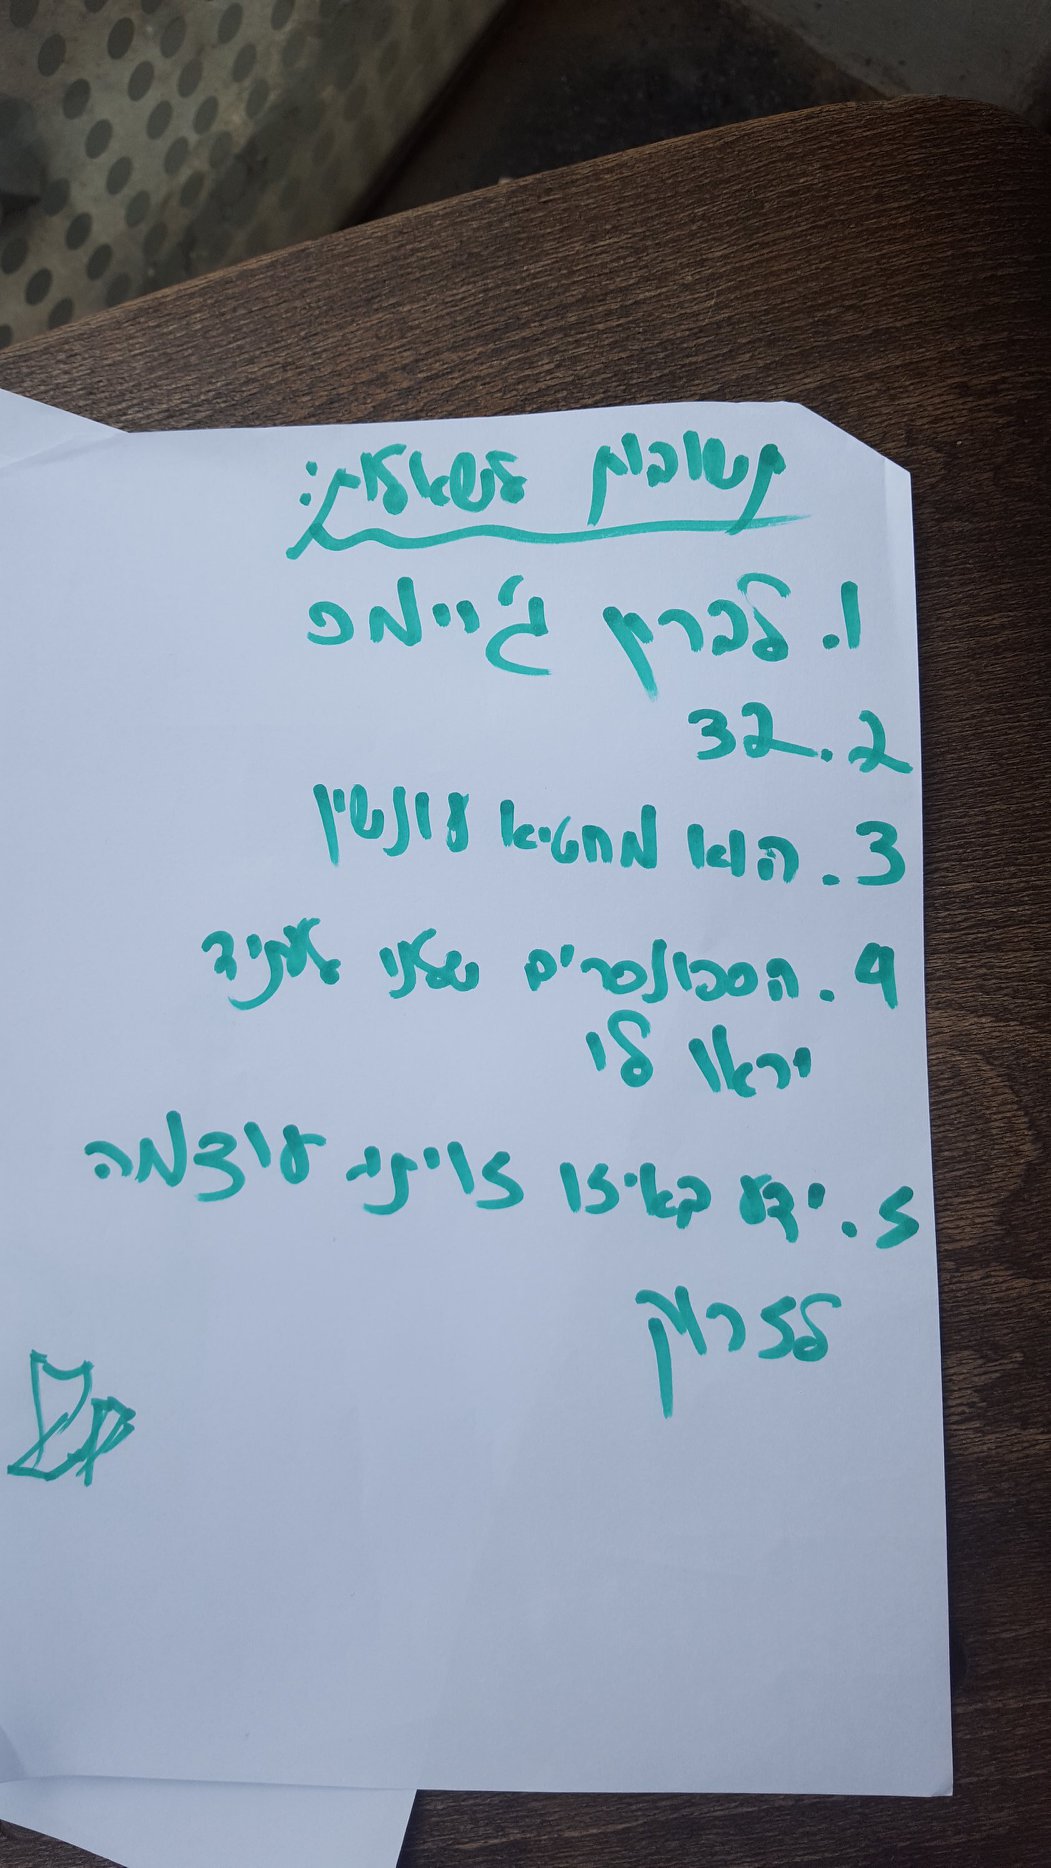 תשובות לשאלות:
1. לברון ג'יימס
2. 32
3. הוא מחטיא עונשין
4. הספונסרים שאני אגיד
יראו לי
5. ידע באיזו זוית ועוצמה
לזרוק